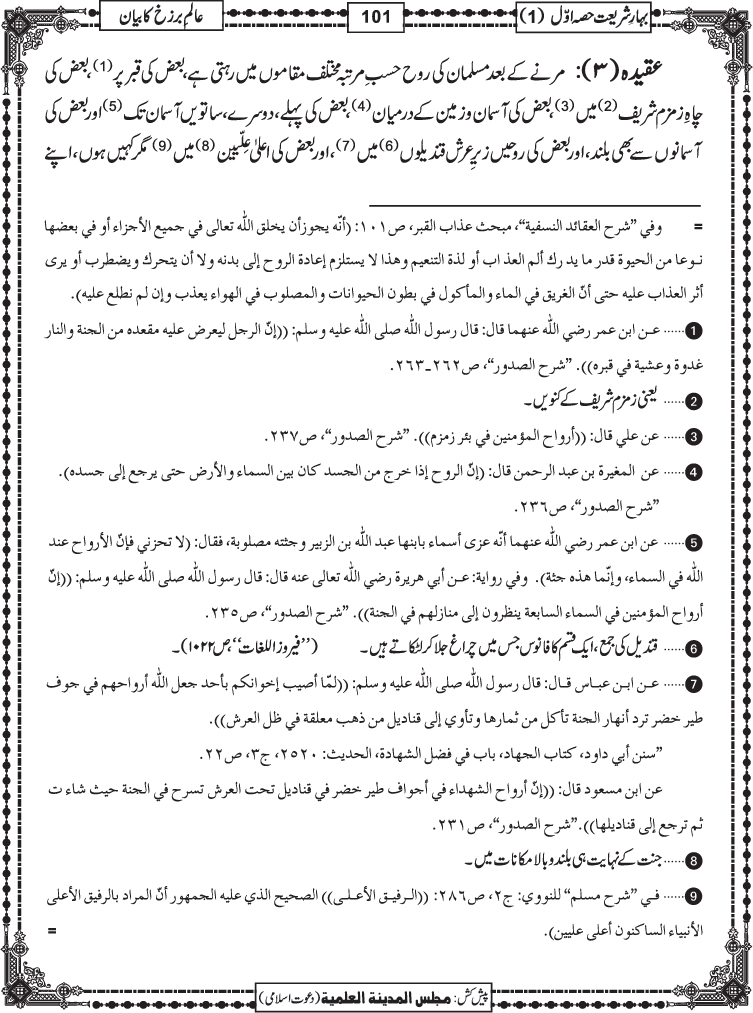 بہارِ شریعت حصہ اوّل (1)
101
عالمِ برزخ کا بیان
عقیدہ (۳): مرنے کے بعد مسلمان کی روح حسبِ مرتبہ مختلف مقاموں میں رہتی ہے، بعض کی قبر پر (1)، بعض کی
چاہِ زمزم شریف (2) میں (3)، بعض کی آسمان و زمین کے درمیان (4)، بعض کی پہلے، دوسرے، ساتویں آسمان تک (5) اور بعض کی
آسمانوں سے بھی بلند، اور بعض کی روحیں زیرِ عرش قندیلوں (6) میں (7)، اور بعض کی اعلیٰ عِلّیین (8) میں (9) مگر کہیں ہوں، اپنے
= وفي ”شرح العقائد النسفية“، مبحث عذاب القبر، ص۱۰۱: (أنّه يجوز أن يخلق الله تعالى في جميع الأجزاء أو في بعضها
نوعا من الحيوة قدر ما يدرك ألم العذاب أو لذة التنعيم وهذا لا يستلزم إعادة الروح إلى بدنه ولا أن يتحرك ويضطرب أو يرى
أثر العذاب عليه حتى أنّ الغريق في الماء والمأكول في بطون الحيوانات والمصلوب في الهواء يعذب وإن لم نطلع عليه).
1 ...... عن ابن عمر رضي الله عنهما قال: قال رسول الله صلى الله عليه وسلم: ((إنّ الرجل ليعرض عليه مقعده من الجنة والنار
غدوة وعشية في قبره)). ”شرح الصدور“، ص۲۶۲ـ۲۶۳.
2 ...... یعنی زمزم شریف کے کنویں۔
3 ...... عن علي قال: ((أرواح المؤمنين في بئر زمزم)). ”شرح الصدور“، ص۲۳۷.
4 ...... عن المغيرة بن عبد الرحمن قال: (إنّ الروح إذا خرج من الجسد كان بين السماء والأرض حتى يرجع إلى جسده).
”شرح الصدور“، ص۲۳۶.
5 ...... عن ابن عمر رضي الله عنهما أنّه عزى أسماء بابنها عبد الله بن الزبير وجثته مصلوبة، فقال: (لا تحزني فإنّ الأرواح عند
الله في السماء، وإنّما هذه جثة). وفي رواية: عن أبي هريرة رضي الله تعالى عنه قال: قال رسول الله صلى الله عليه وسلم: ((إنّ
أرواح المؤمنين في السماء السابعة ينظرون إلى منازلهم في الجنة)). ”شرح الصدور“، ص۲۳۵.
6 ...... قندیل کی جمع، ایک قسم کا فانوس جس میں چراغ جلا کر لٹکاتے ہیں۔ (’’فیروز اللغات‘‘، ص۱۰۲۲)۔
7 ...... عن ابن عباس قال: قال رسول الله صلى الله عليه وسلم: ((لمّا أصيب إخوانكم بأحد جعل الله أرواحهم في جوف
طير خضر ترد أنهار الجنة تأكل من ثمارها وتأوي إلى قناديل من ذهب معلقة في ظل العرش)).
”سنن أبي داود، كتاب الجهاد، باب في فضل الشهادة، الحديث: ۲۵۲۰، ج۳، ص۲۲.
عن ابن مسعود قال: ((إنّ أرواح الشهداء في أجواف طير خضر في قناديل تحت العرش تسرح في الجنة حيث شاء ت
ثم ترجع إلى قناديلها)).”شرح الصدور“، ص۲۳۱.
8 ...... جنت کے نہایت ہی بلند و بالا مکانات میں۔
9 ...... في ”شرح مسلم“ للنووي: ج۲، ص۲۸۶: ((الرفيق الأعلى)) الصحيح الذي عليه الجمهور أنّ المراد بالرفيق الأعلى
الأنبياء الساكنون أعلى عليين). =
پیش کش: مجلس المدينة العلمية (دعوتِ اسلامی)